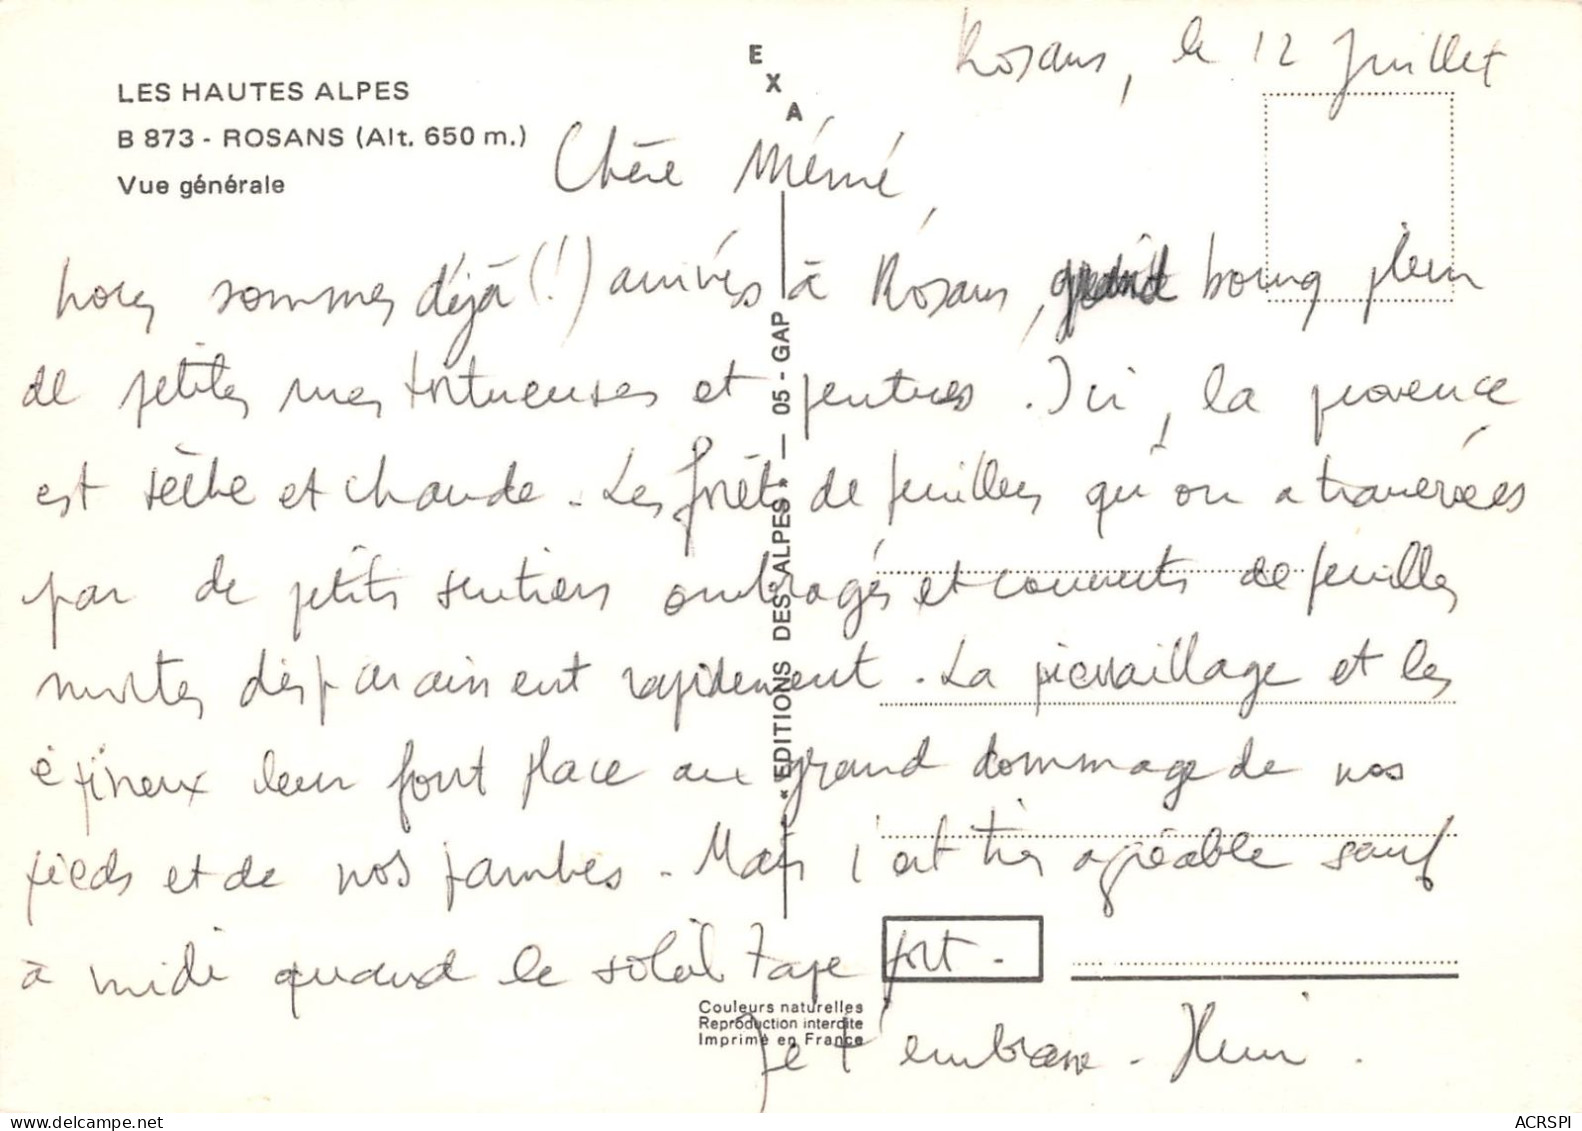 Rosans, le 12 Juillet
E
X
A
LES HAUTES ALPES
B 873 - ROSANS (Alt. 650 m.)
Vue générale
Chère Mémé,
nous sommes déjà (!) arrivés à Rosans, bourg plein
de petites rues tortueuses et pentues. Ici, la provence
est sèche et chaude. Les forêts de feuilles qu'on a traversées
par de petits sentiers ombragés et couverts de feuilles
mortes disparaissent rapidement. La pierraillage et les
épineux leur font place au grand dommage de nos
pieds et de nos jambes. Mais c'est très agréable sauf
à midi quand le soleil tape fort.
Je t'embrasse. Henri.
« EDITIONS DES ALPES » — 05 - GAP
Couleurs naturelles
Reproduction interdite
Imprimé en France
ACRSPI